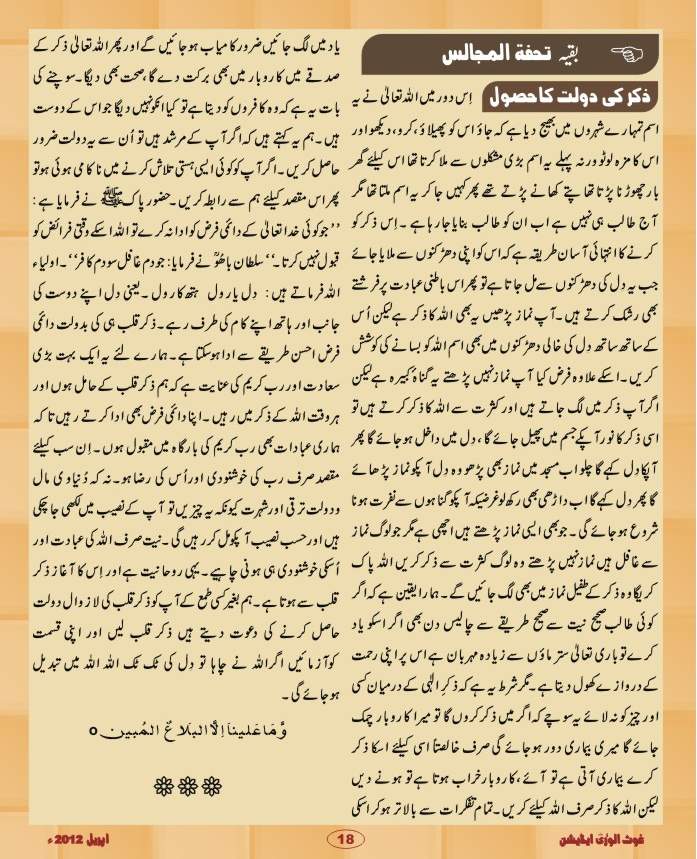 بقیہ تحفۃ المجالس
ذکر کی دولت کا حصول
اِس دور میں اللہ تعالیٰ نے یہ
اسم تمہارے شہروں میں بھیج دیا ہے کہ جاؤ اس کو پھیلاؤ، کرو، دیکھو اور
اس کا مزہ لو تو ورنہ پہلے یہ اسم بڑی مشکلوں سے ملا کرتا تھا اس کیلئے گھر
بار چھوڑنا پڑتا تھا پتے کھانے پڑتے تھے پھر کہیں جا کر یہ اسم ملتا تھا مگر
آج طالب ہی نہیں ہے اب ان کو طالب بنایا جا رہا ہے۔ اِس ذکر کو
کرنے کا انتہائی آسان طریقہ ہے کہ اس کو اپنی دھڑکنوں سے ملایا جائے
جب یہ دل کی دھڑکنوں سے مل جاتا ہے تو پھر اس باطنی عبادت پر فرشتے
بھی رشک کرتے ہیں۔ آپ نماز پڑھیں یہ بھی اللہ کا ذکر ہے لیکن اُس
کے ساتھ ساتھ دل کی خالی دھڑکنوں میں بھی اسم اللہ کو بسانے کی کوشش
کریں۔ اسکے علاوہ فرض کیا آپ نماز نہیں پڑھتے یہ گناہ کبیرہ ہے لیکن
اگر آپ ذکر میں لگ جاتے ہیں اور کثرت سے اللہ کا ذکر کرتے ہیں تو
اسی ذکر کا نور آپکے جسم میں پھیل جائے گا، دل میں داخل ہو جائے گا پھر
آپکا دل کہے گا چلو اب مسجد میں نماز بھی پڑھو وہ دل آپکو نماز پڑھائے
گا پھر دل کہے گا اب داڑھی بھی رکھ لو غرضیکہ آپکو گناہوں سے نفرت ہونا
شروع ہو جائے گی۔ جو بھی ایسی نماز پڑھتے ہیں اچھی ہے مگر جو لوگ نماز
سے غافل ہیں نماز نہیں پڑھتے وہ لوگ کثرت سے ذکر کریں اللہ پاک
کریگا وہ ذکر کے طفیل نماز میں بھی لگ جائیں گے۔ ہمارا یقین ہے کہ اگر
کوئی طالب صحیح نیت سے صحیح طریقے سے چالیس دن بھی اگر اسکو یاد
کرے تو باری تعالیٰ ستر ماؤں سے زیادہ مہربان ہے اس پر اپنی رحمت
کے دروازے کھول دیتا ہے۔ مگر شرط یہ ہے کہ ذکرِ الٰہی کے درمیان کسی
اور چیز کو نہ لائے یہ سوچے کہ اگر میں ذکر کروں گا تو میرا کاروبار چمک
جائے گا میری بیماری دور ہو جائے گی صرف خالصتاً اسی کیلئے اسکا ذکر
کرے بیماری آتی ہے تو آئے، کاروبار خراب ہوتا ہے تو ہونے دیں
لیکن اللہ کا ذکر صرف اللہ کیلئے کریں۔ تمام تفکرات سے بالاتر ہو کر اسکی
یاد میں لگ جائیں ضرور کامیاب ہو جائیں گے اور پھر اللہ تعالیٰ ذکر کے
صدقے میں کاروبار میں بھی برکت دے گا، صحت بھی دیگا۔ سوچنے کی
بات یہ ہے کہ وہ کافروں کو دیتا ہے تو کیا انکو نہیں دیگا جو اس کے دوست
ہیں۔ ہم یہ کہتے ہیں کہ اگر آپ کے مرشد ہیں تو اُن سے یہ دولت ضرور
حاصل کریں۔ اگر آپ کو کوئی ایسی ہستی تلاش کرنے میں ناکامی ہوئی ہو تو
پھر اس مقصد کیلئے ہم سے رابطہ کریں۔ حضور پاک ﷺ نے فرمایا ہے:
’’جو کوئی خدا تعالیٰ کے دائمی فرض کو ادا نہ کرے تو اللہ اسکے وقتی فرائض کو
قبول نہیں کرتا۔‘‘ سلطان باھُوؒ نے فرمایا: جو دم غافل سو دم کافر‘‘۔ اولیاء
اللہ فرماتے ہیں: دل یار ول ہتھ کار ول۔ یعنی دل اپنے دوست کی
جانب اور ہاتھ اپنے کام کی طرف رہے۔ ذکر قلب ہی کی بدولت دائمی
فرض احسن طریقے سے ادا ہو سکتا ہے۔ ہمارے لئے یہ ایک بہت بڑی
سعادت اور رب کریم کی عنایت ہے کہ ہم ذکر قلب کے حامل ہوں اور
ہر وقت اللہ کے ذکر میں رہیں۔ اپنا دائمی فرض بھی ادا کرتے رہیں تا کہ
ہماری عبادات بھی رب کریم کی بارگاہ میں مقبول ہوں۔ اِن سب کیلئے
مقصد صرف رب کی خوشنودی اور اُس کی رضا ہو۔ نہ کہ دُنیاوی مال
و دولت ترقی اور شہرت کیونکہ یہ چیزیں تو آپ کے نصیب میں لکھی جا چکی
ہیں اور حسب نصیب آپکو مل کر رہیں گی۔ نیت صرف اللہ کی عبادت اور
اُسکی خوشنودی ہی ہونی چاہیے۔ یہی روحانیت ہے اور اِس کا آغاز ذکر
قلب سے ہوتا ہے۔ ہم بغیر کسی طمع کے آپ کو ذکر قلب کی لازوال دولت
حاصل کرنے کی دعوت دیتے ہیں ذکر قلب لیں اور اپنی قسمت
کو آزمائیں اگر اللہ نے چاہا تو دل کی ٹک ٹک اللہ اللہ میں تبدیل
ہو جائے گی۔
وَمَا عَلینا اِلّا البلَاغُ المُبین ٥
غوث الورٰی ایڈیشن
18
اپریل 2012ء